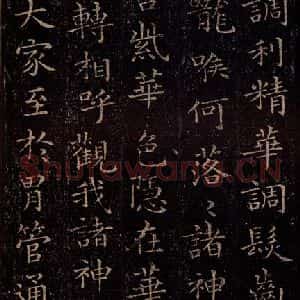 調利精華調髮齒
嚨喉何落〻諸神
紫華色隱在華
轉相呼觀我諸神
大家至於胃管通
Shufawang.CN